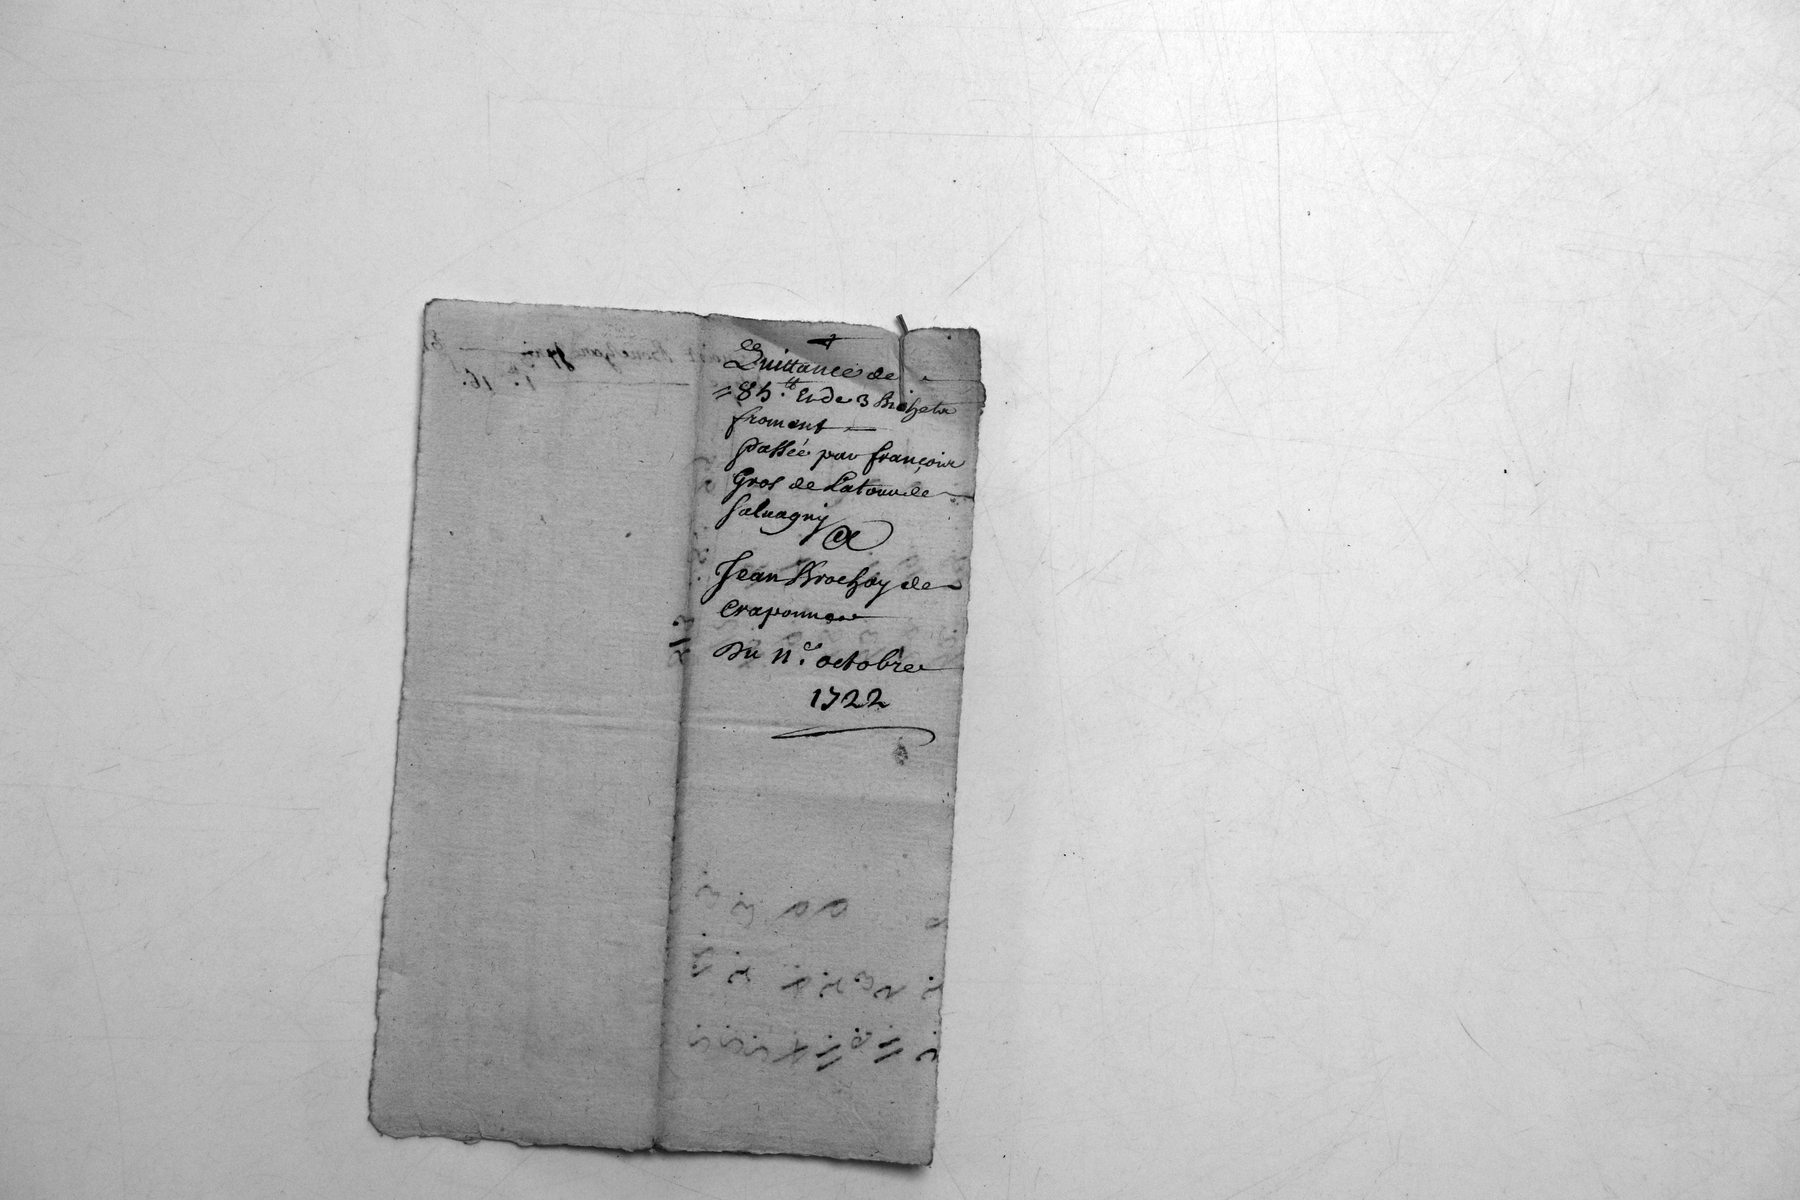 Quittance de
=85.ᵗᵗ Et de 3 Bichets
froment
passée par françois
Gros de Latour de
salvagny
A
Jean Brochay de
craponne
Du 11.ᵉ octobre
1722